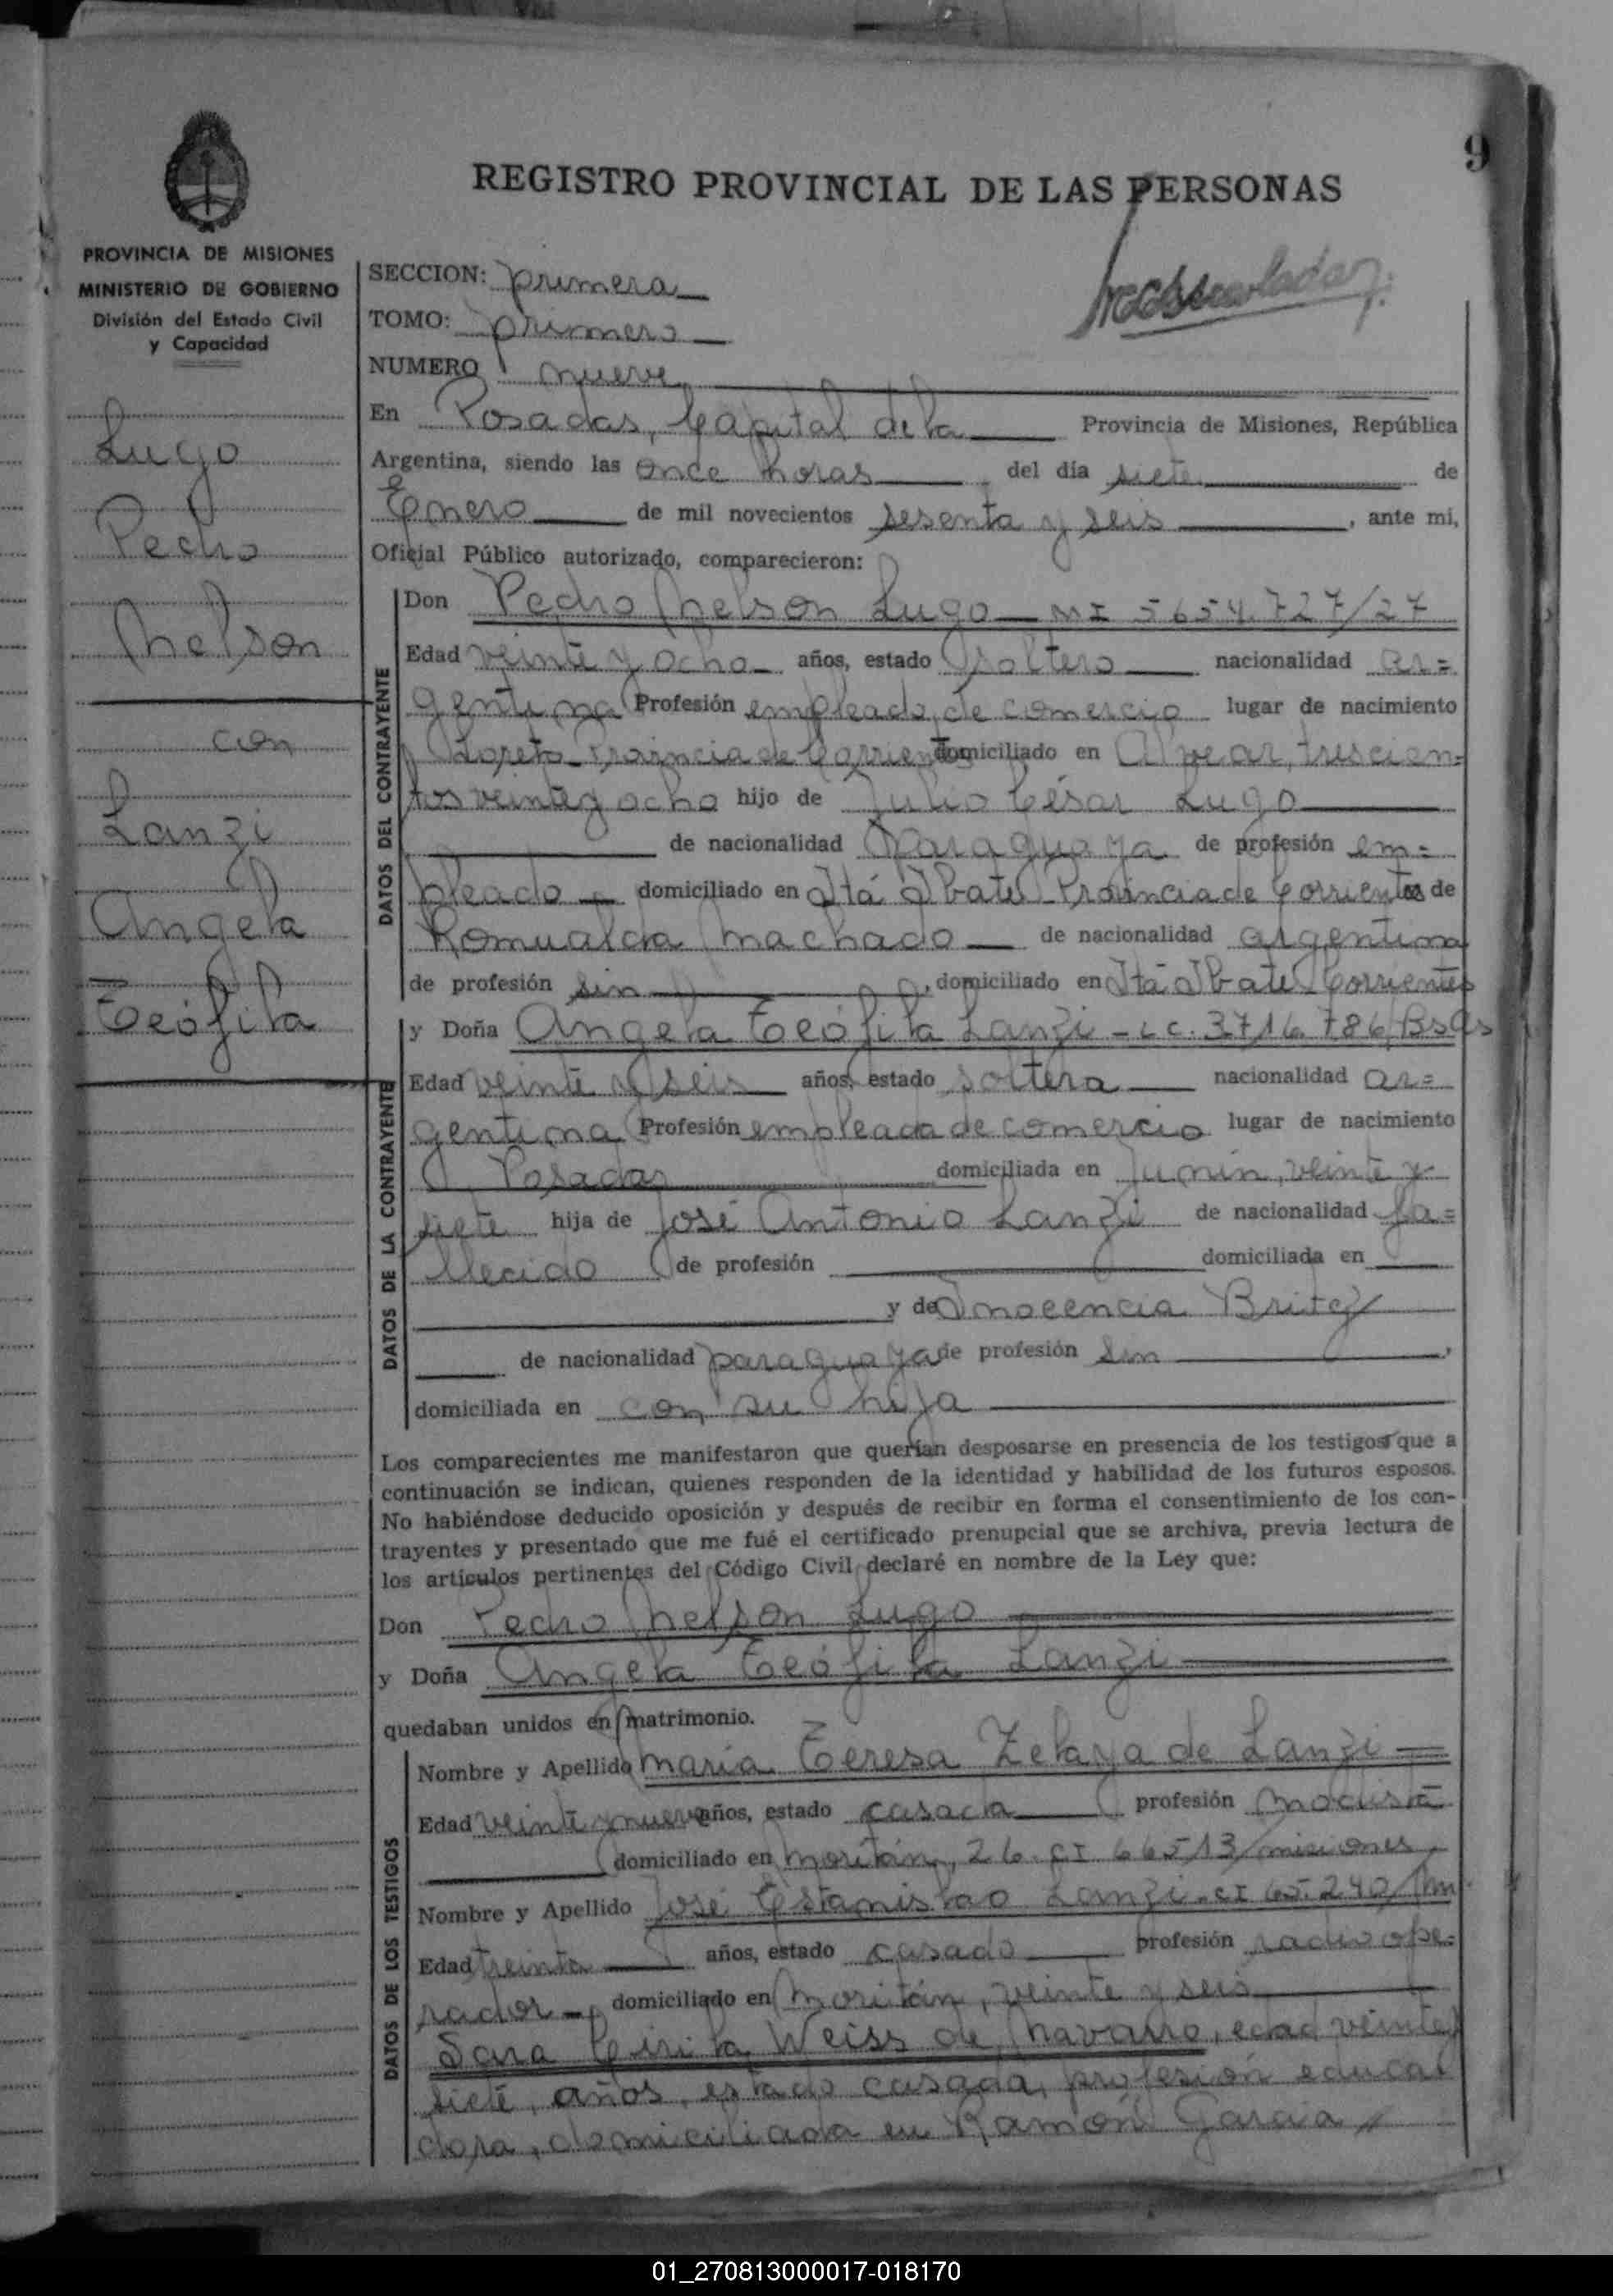 9
REGISTRO PROVINCIAL DE LAS PERSONAS
PROVINCIA DE MISIONES
MINISTERIO DE GOBIERNO
División del Estado Civil
y Capacidad
Lugo
Pedro
Nelson
con
Lanzi
Angela
Teófila
SECCION: primera
TOMO: primero
NUMERO nueve
En Posadas, Capital de la Provincia de Misiones, República
Argentina, siendo las once horas del día siete de
Enero de mil novecientos sesenta y seis, ante mi,
Oficial Público autorizado, comparecieron:
DATOS DEL CONTRAYENTE
Don Pedro Nelson Lugo - MI 5654.727/27
Edad veinte y ocho años, estado soltero nacionalidad ar=
gentina Profesión empleado de comercio lugar de nacimiento
Loreto - Provincia de Corrientes domiciliado en Alvear, trescien=
tos veinte y ocho hijo de Julio César Lugo
de nacionalidad Paraguaya de profesión em=
pleado - domiciliado en Itá Ibaté - Provincia de Corrientes de
Romualda Machado de nacionalidad argentina
de profesión sin, domiciliado en Itá Ibaté - Corrientes
DATOS DE LA CONTRAYENTE
y Doña Angela Teófila Lanzi - LC. 3716.786/BsAs
Edad veinte y seis años, estado soltera nacionalidad ar=
gentina Profesión empleada de comercio lugar de nacimiento
Posadas domiciliada en Junín, veinte y
siete hija de José Antonio Lanzi de nacionalidad fa=
llecido de profesión domiciliada en
y de Inocencia Britez
de nacionalidad paraguaya de profesión sin,
domiciliada en con su hija
Los comparecientes me manifestaron que querían desposarse en presencia de los testigos que a
continuación se indican, quienes responden de la identidad y habilidad de los futuros esposos.
No habiéndose deducido oposición y después de recibir en forma el consentimiento de los con-
trayentes y presentado que me fué el certificado prenupcial que se archiva, previa lectura de
los artículos pertinentes del Código Civil declaré en nombre de la Ley que:
Don Pedro Nelson Lugo
y Doña Angela Teófila Lanzi
quedaban unidos en matrimonio.
DATOS DE LOS TESTIGOS
Nombre y Apellido María Teresa Zelaya de Lanzi
Edad veinte y nueve años, estado casada profesión modista
domiciliado en Moritán, 26. CI 66513/misiones
Nombre y Apellido José Estanislao Lanzi - CI 65.240/Mn
Edad treinta años, estado casado profesión radio ope=
rador - domiciliado en Moritán, veinte y seis
Sara Cirila Weiss de Navarro, edad veinte y
siete, años, estado casada, profesión educa
dora, domiciliada en Ramón García
01_270813000017-018170